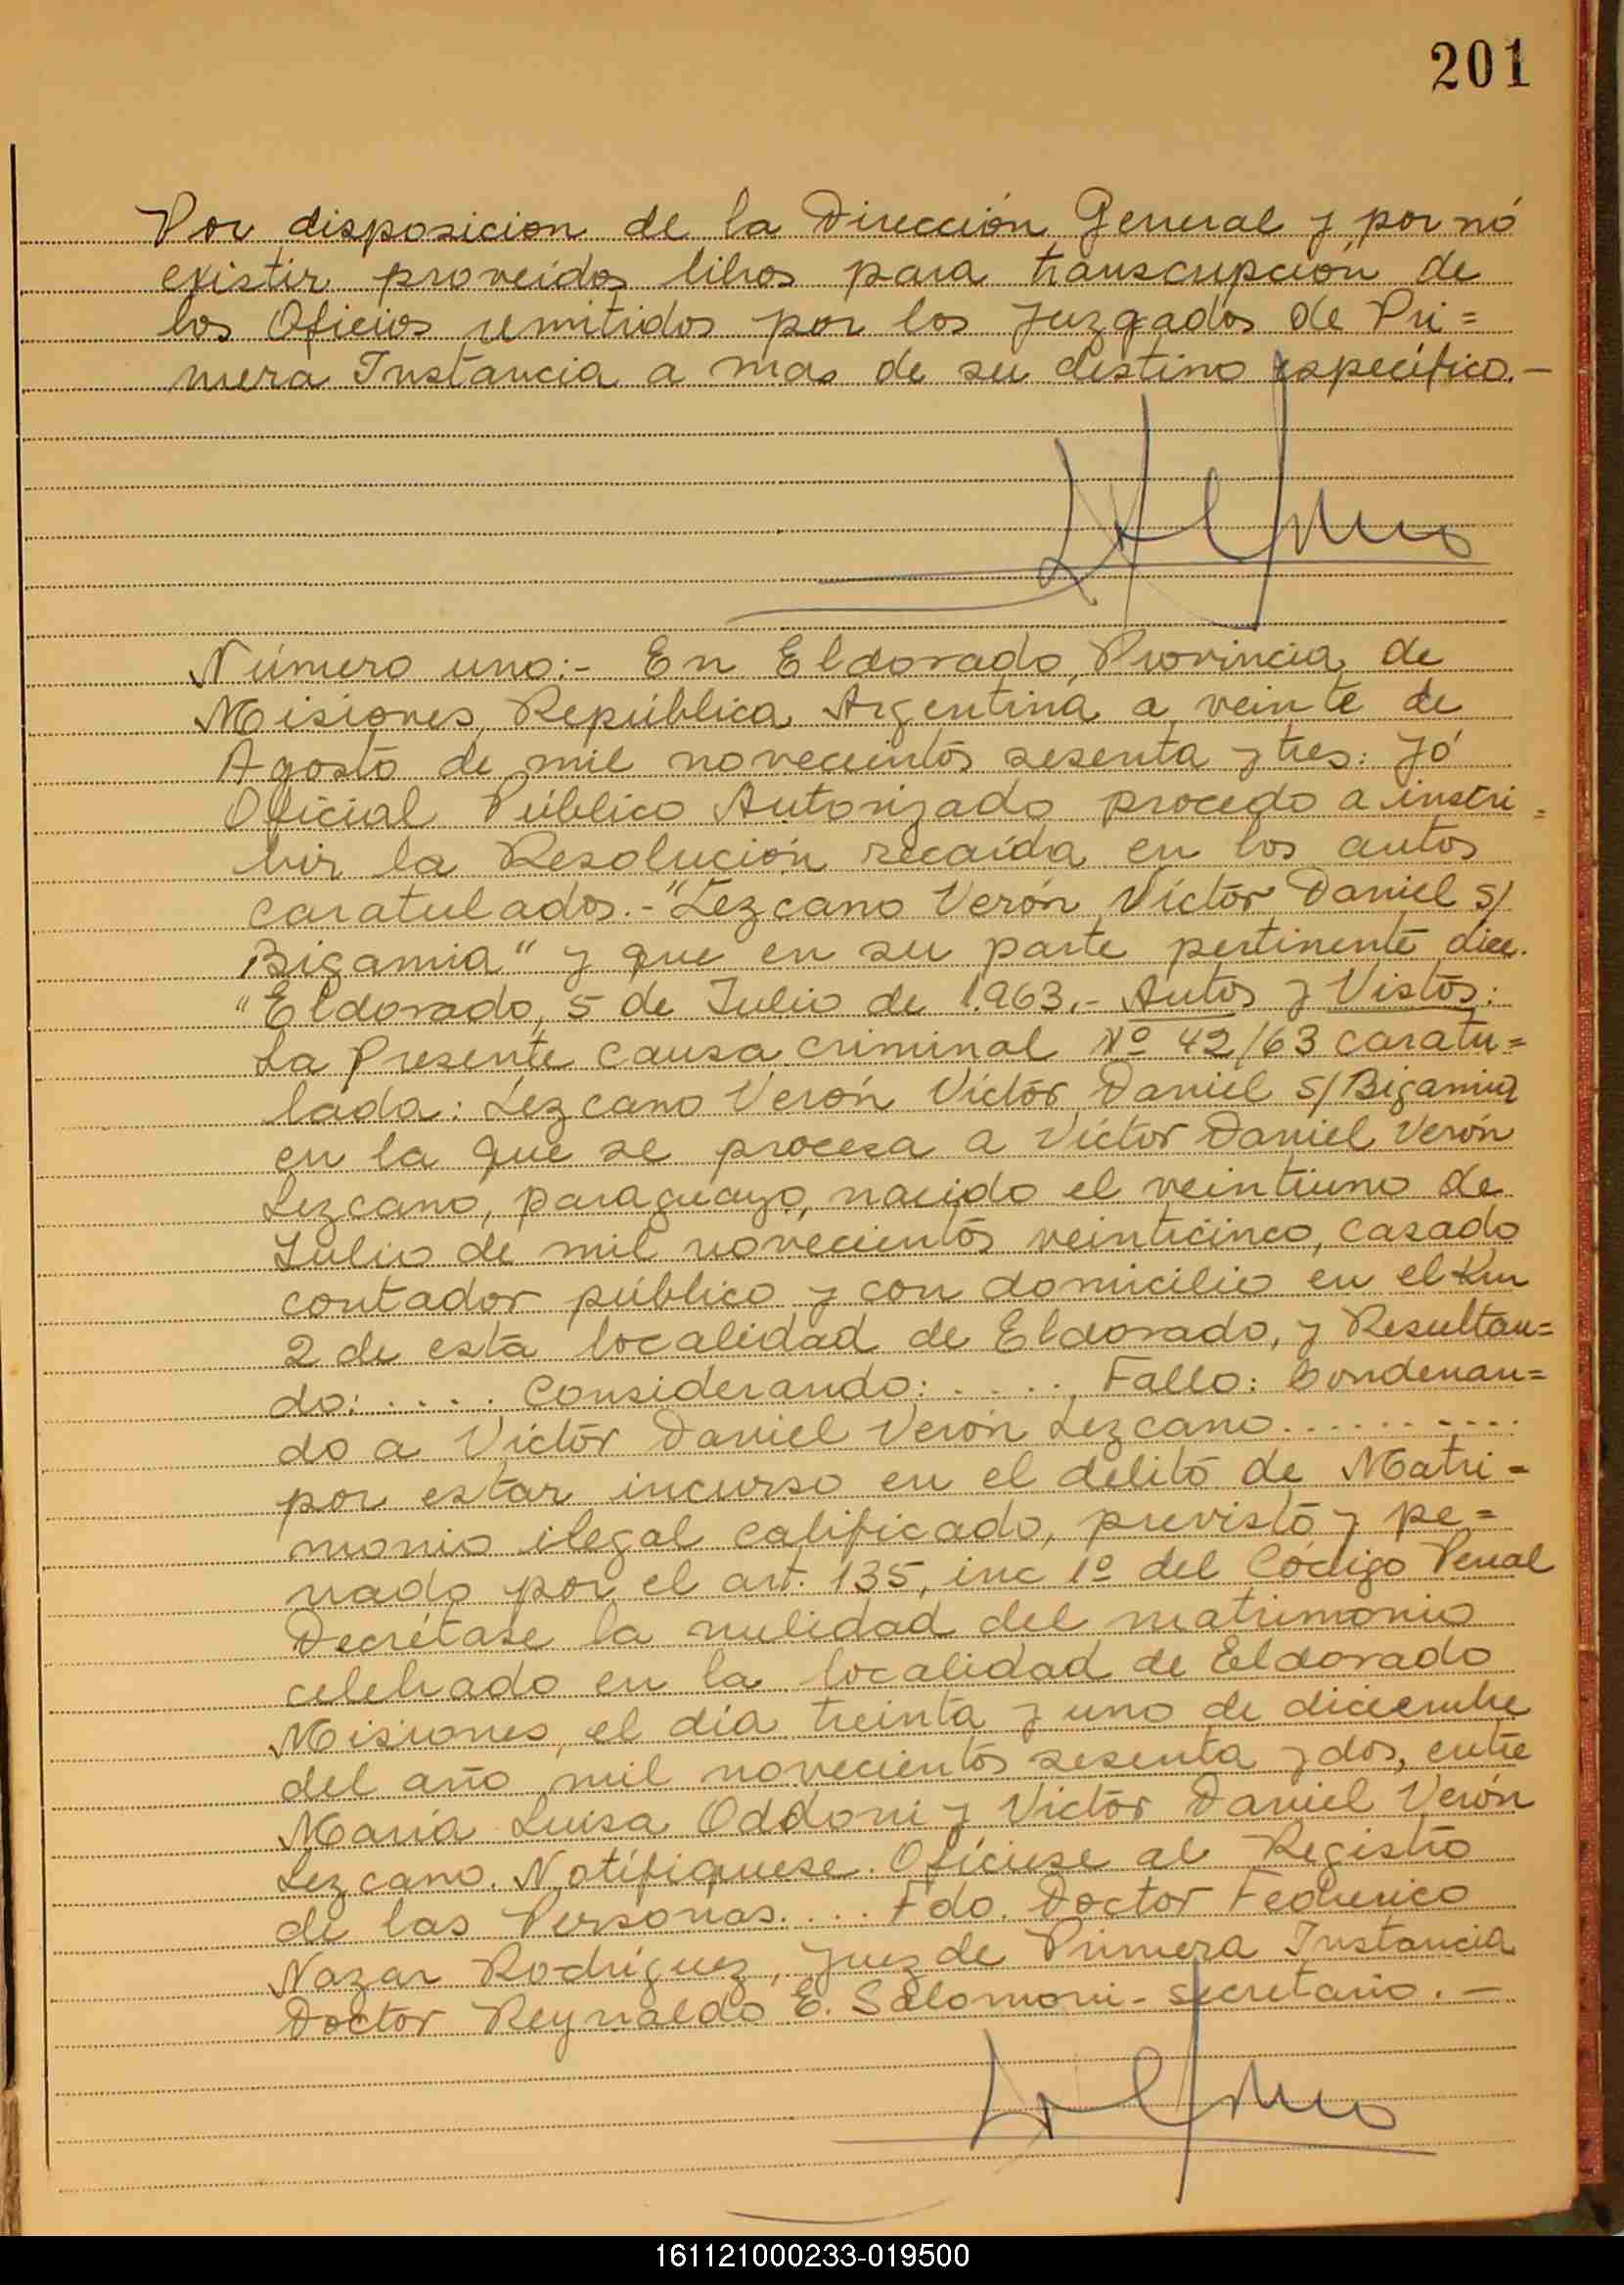 201
Por disposicion de la Dirección General y por nó
existir proveídos libros para transcripción de
los Oficios remitidos por los Juzgados de Pri=
mera Instancia a mas de su destino específico.—
Número uno:- En Eldorado, Provincia de
Misiones, República Argentina a veinte de
Agosto de mil novecientos sesenta y tres: Yó
Oficial Público Autorizado procedo a inscri=
bir la Resolución recaída en los autos
caratulados.-"Lezcano Verón Víctor Daniel s/
Bigamia" y que en su parte pertinente dice.
"Eldorado, 5 de Julio de 1.963.- Autos y Vistos:
La Presente causa criminal Nº 42/63 caratu=
lada: Lezcano Verón Víctor Daniel s/Bigamia
en la que se procesa a Víctor Daniel Verón
Lezcano, paraguayo, nacido el veintiuno de
Julio de mil novecientos veinticinco, casado
contador público y con domicilio en el Km
2 de esta localidad de Eldorado, y Resultan=
do: .... Considerando: ..... Fallo: Condenan=
do a Víctor Daniel Verón Lezcano..........
por estar incurso en el delito de Matri=
monio ilegal calificado, previsto y pe=
nado por el art. 135, inc 1º del Código Penal
Decrétase la nulidad del matrimonio
celebrado en la localidad de Eldorado
Misiones, el día treinta y uno de diciembre
del año mil novecientos sesenta y dos, entre
María Luisa Oddoni y Víctor Daniel Verón
Lezcano. Notífiquese. Ofíciese al Registro
de las Personas.... Fdo. Doctor Federico
Nazar Rodríguez, Juez de Primera Instancia
Doctor Reynaldo E. Salomoni - secretario.—
161121000233-019500